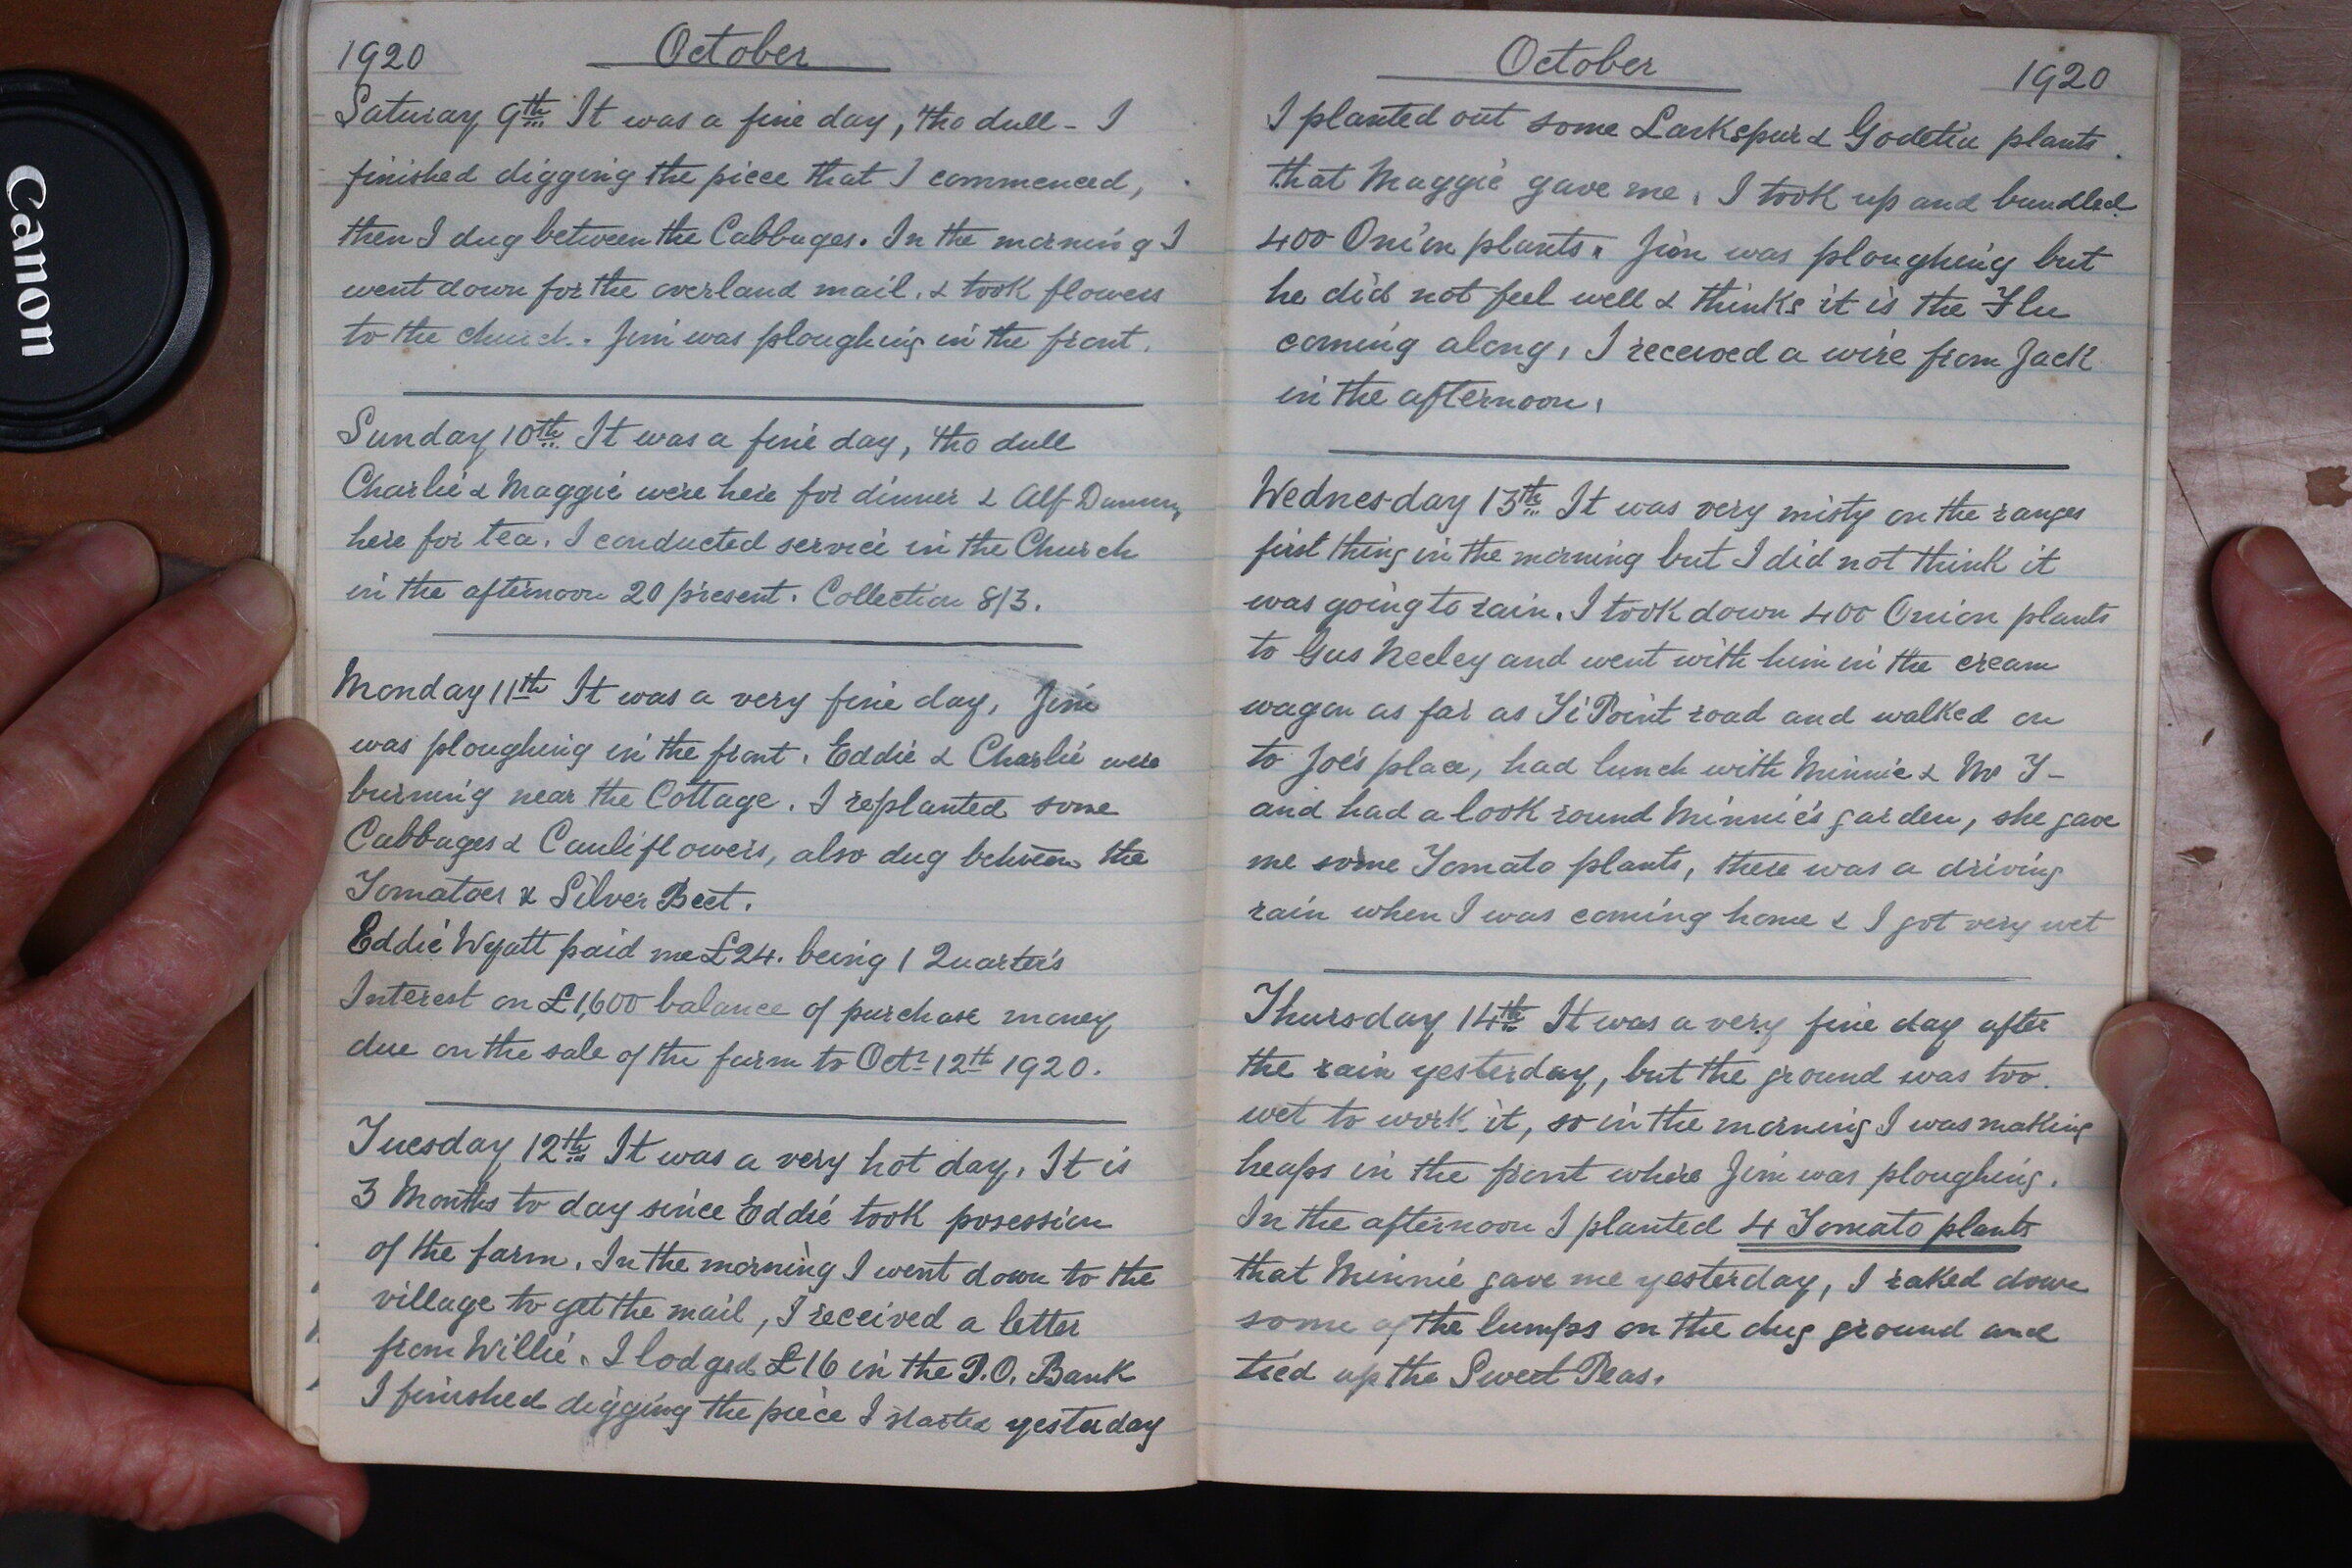 Canon
1920 October
Saturay 9th It was a fine day, tho dull - I
finished digging the piece that I commenced,
then I dug between the Cabbages. In the morning I
went down for the overland mail. & took flowers
to the church. Jim was ploughing in the front.
Sunday 10th It was a fine day, tho dull
Charlie & Maggie were here for dinner & Alf
here for tea. I conducted service in the Church
in the afternoon 20 present. Collection 8/3.
Monday 11th It was a very fine day, Jim
was ploughing in the front. Eddie & Charlie were
burning near the Cottage. I replanted some
Cabbages & Cauliflowers, also dug between the
Tomatoes & Silver Beet.
Eddie Wyatt paid me £24. being 1 Quarter's
Interest on £1,600 balance of purchase money
due on the sale of the farm to Octr 12th 1920.
Tuesday 12th It was a very hot day. It is
3 Months to day since Eddie took posession
of the farm. In the morning I went down to the
village to get the mail, I received a letter
from Willie. I lodged £16 in the P.O. Bank
I finished digging the piece I started yesterday
October 1920
I planted out some Larkspur & Godetia plants
that Maggie gave me. I took up and bundled
400 Onion plants. Jim was ploughing but
he did not feel well & thinks it is the Flu
coming along, I received a wire from Jack
in the afternoon.
Wednesday 13th It was very misty on the ranges
first thing in the morning but I did not think it
was going to rain. I took down 400 Onion plants
to Gus Neeley and went with him in the cream
wagon as far as Ti Point road and walked on
to Joe's place, had lunch with Minnie & Mr T-
and had a look round Minnie's garden, she gave
me some Tomato plants, there was a driving
rain when I was coming home & I got very wet
Thursday 14th It was a very fine day after
the rain yesterday, but the ground was too
wet to work it, so in the morning I was making
heaps in the front where Jim was ploughing.
In the afternoon I planted 4 Tomato plants
that Minnie gave me yesterday, I raked down
some of the lumps on the dug ground and
tied up the Sweet Peas.